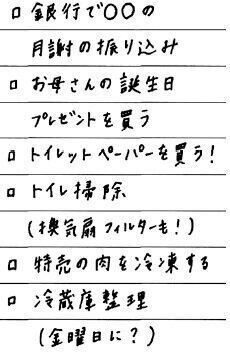 □ 銀行で〇〇の
月謝の振り込み
□ お母さんの誕生日
プレゼントを買う
□ トイレットペーパーを買う!
□ トイレ掃除
(換気扇フィルターも!)
□ 特売の肉を冷凍する
□ 冷蔵庫整理
(金曜日に?)